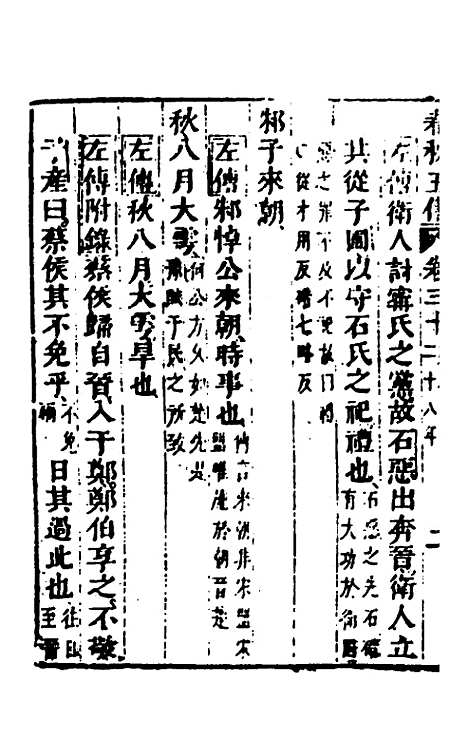 春秋五傳 卷三十二 十八年 一
左傳衛人討甯氏之黨故石惡出奔晉衛人立
其從子圃以守石氏之祀禮也 石惡之先石碏有大功於衛
惡之罪不及不祀故曰禮 從才用反碏七略反
邾子來朝
左傳邾悼公來朝時事也 傳言來朝非宋盟宋盟唯施於朝晉楚
秋八月大雩 何公方久如楚先是豫賦于民之所致
左傳秋八月大雩旱也
左傳附錄蔡侯歸自晉入于鄭鄭伯享之不敬
子產曰蔡侯其不免乎 不免禍 日其過此也 往日至晉